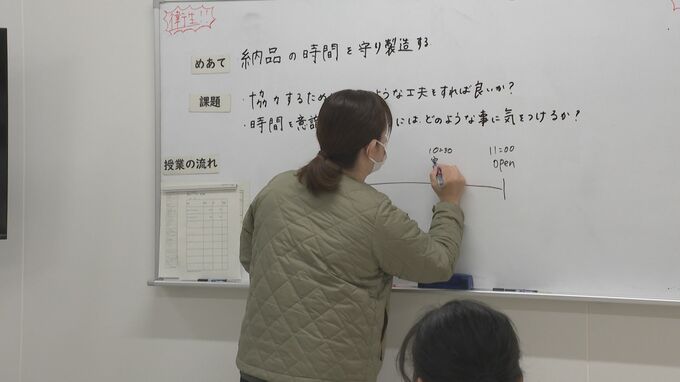 衛生!!
めあて 納品の時間を守り製造する
課題 ・協力するため ような工夫をすれば良いか?
・時間を意識 には、どのような事に気をつけるか?
授業の流れ
10:30 11:00
Open